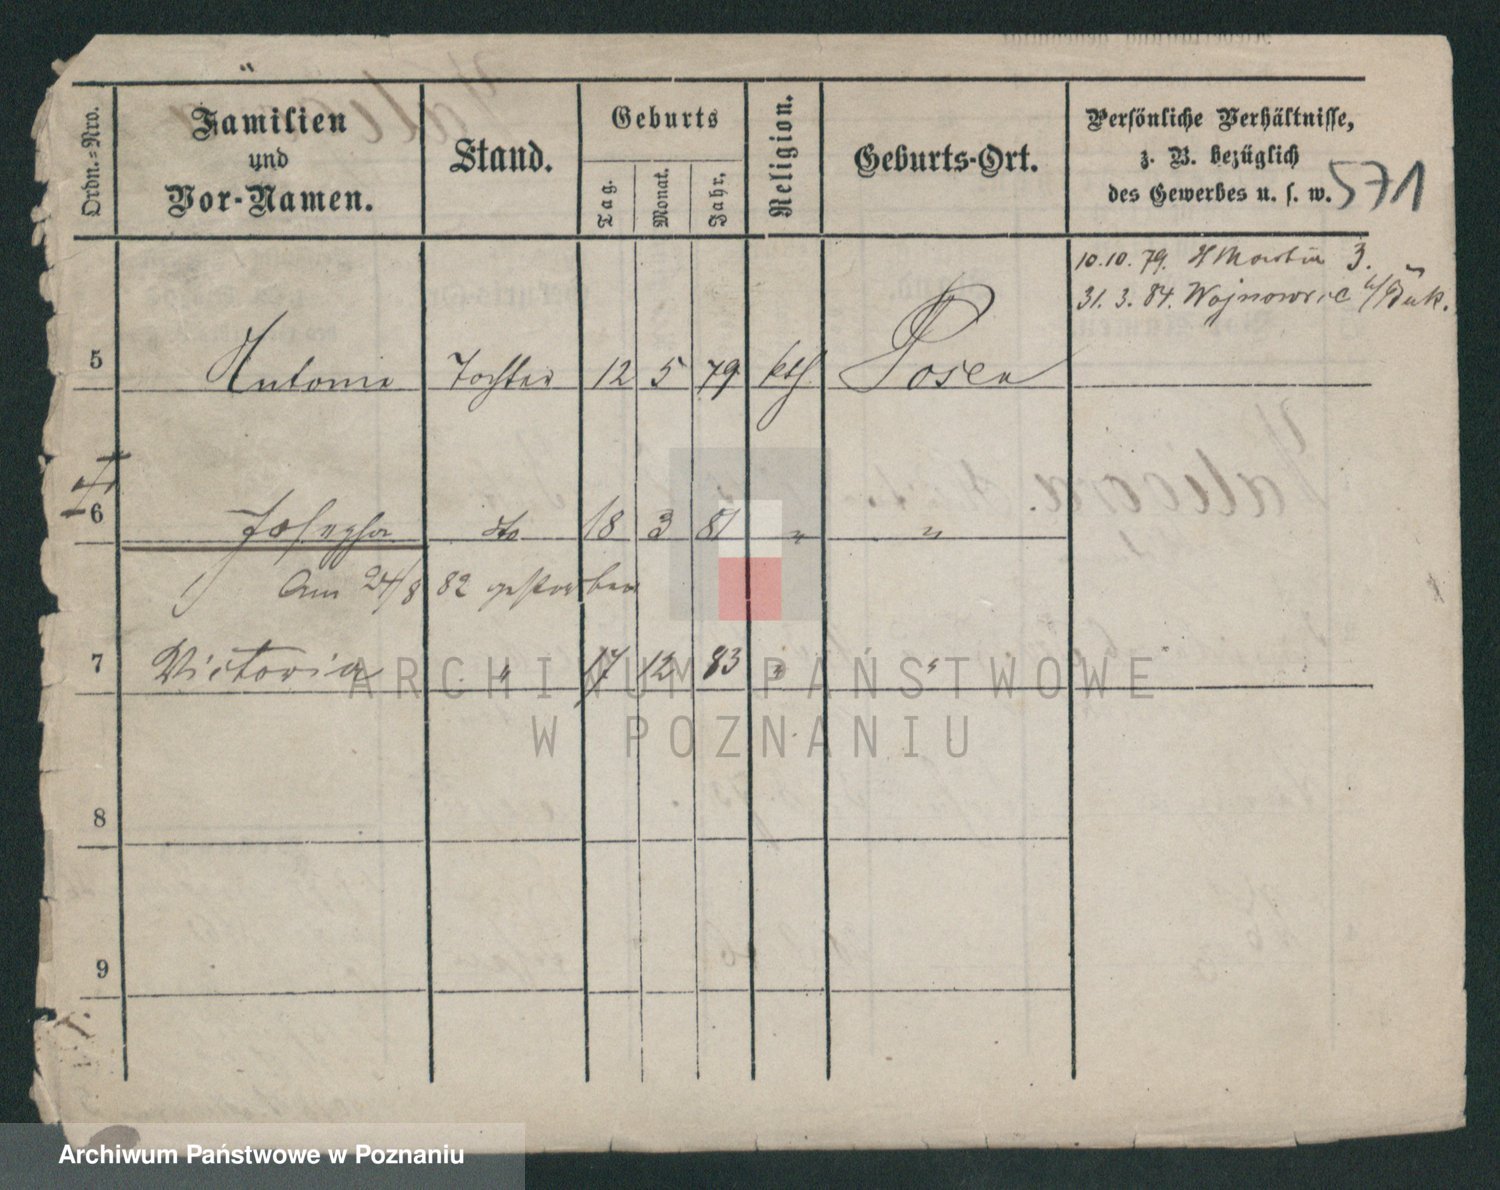 Ordn.=Nro.
Familien
und
Vor-Namen.
Stand.
Geburts
Tag.
Monat.
Jahr.
Religion.
Geburts-Ort.
Persönliche Verhältnisse,
z. B. bezüglich
des Gewerbes u. s. w.
571
10.10.79. St Martin 3.
31. 3. 84. Wojnowice Buk.
5 Antonie Tochter 12 5 79 kth Posen
6 Josepha do 18 3 81 " "
Am 24/8 82 gestorben
7 Victoria " 17 12 83 " "
ARCHIWUM PAŃSTWOWE
W POZNANIU
8
9
Archiwum Państwowe w Poznaniu